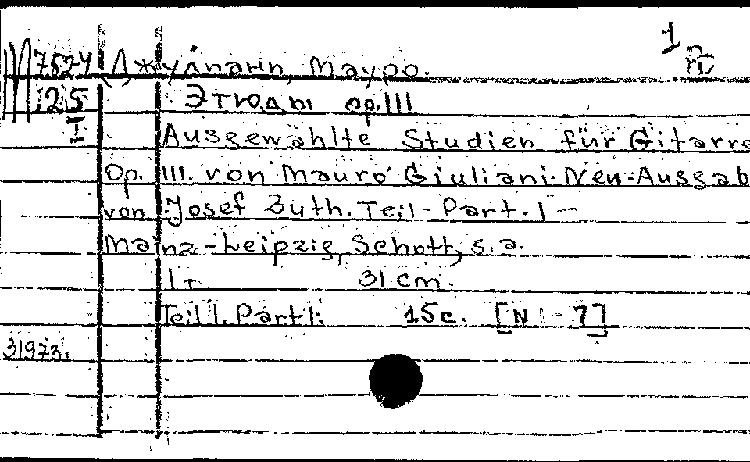 1
М 7524 Джулиани, Мауро.
125 Этюды op. III
I Ausgewählte Studien für Gitarre
Op. III. von Mauro Giuliani. Neu-Ausgab
von Josef Zuth. Teil-Part. 1 —
Mainz-Leipzig, Schott, s.a.
1 т. 31 cm.
Teil 1. Part 1: 15 c. [N 1-7]
31973.